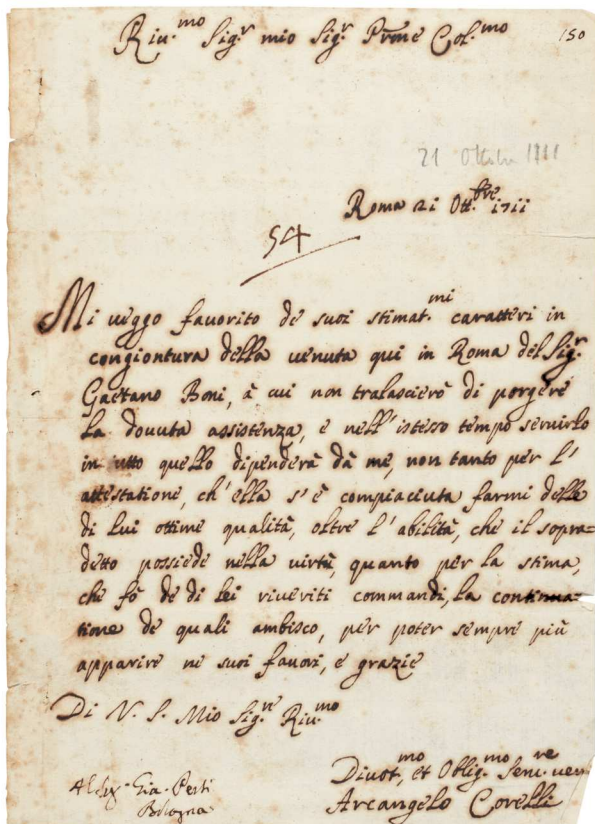 Riu.mo Sig.r mio Sig.r Prône Col.mo
150
21 Ottobre 1711
Roma 21 Ott.bre 1711
54
Mi veggo favorito de suoi stimat.mi caratteri in
congiontura della venuta qui in Roma del Sig.r
Gaetano Boni, à cui non tralascierò di porgere
la douuta assistenza, e nell'istesso tempo seruirlo
in tutto quello dipenderà dà me, non tanto per l'
attestatione, ch'ella s'è compiaciuta farmi delle
di lui ottime qualità, oltre l'abilità, che il sopra=
detto possiede nella virtù, quanto per la stima,
che fò de di lei riueriti commandi, la continua=
tione de quali ambisco, per poter sempre più
apparire ne suoi fauori, e grazie
Di V. S. Mio Sig.re Riu.mo
Diuot.mo et Oblig.mo Seru.re uero
Arcangelo Corelli
Gia. Perti
Bologna